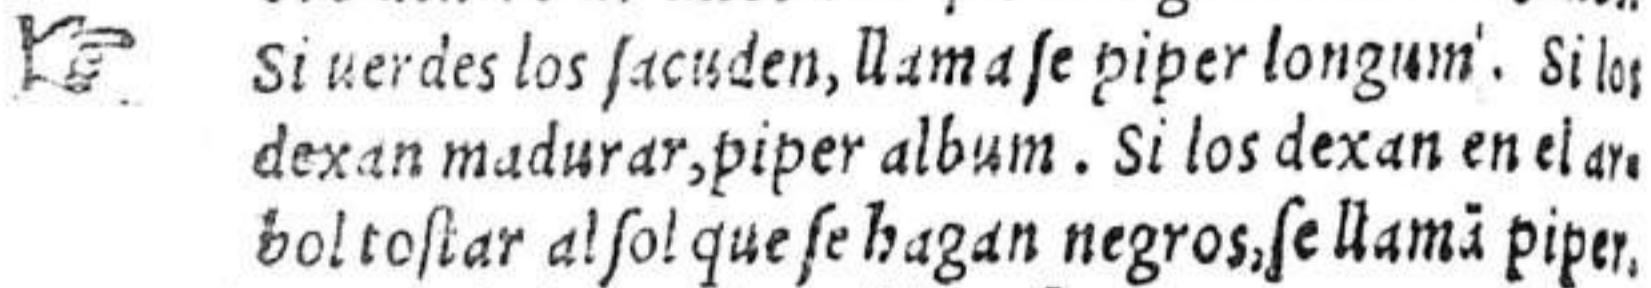 Si uerdes los ſacuden, llama ſe piper longum. Si los
dexan madurar, piper album. Si los dexan en el ar-
bol toſtar al ſol que ſe hagan negros, ſe llamã piper,